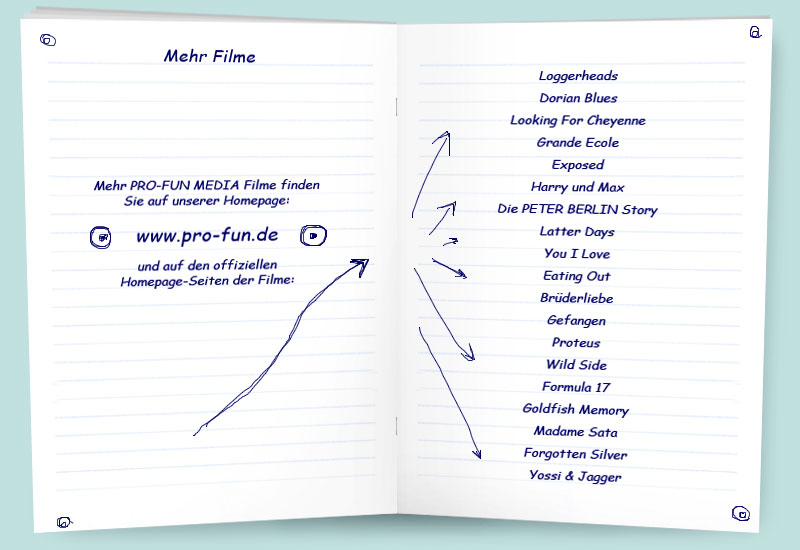 Mehr Filme
Mehr PRO-FUN MEDIA Filme finden
Sie auf unserer Homepage:
www.pro-fun.de
und auf den offiziellen
Homepage-Seiten der Filme:
Loggerheads
Dorian Blues
Looking For Cheyenne
Grande Ecole
Exposed
Harry und Max
Die PETER BERLIN Story
Latter Days
You I Love
Eating Out
Brüderliebe
Gefangen
Proteus
Wild Side
Formula 17
Goldfish Memory
Madame Sata
Forgotten Silver
Yossi & Jagger